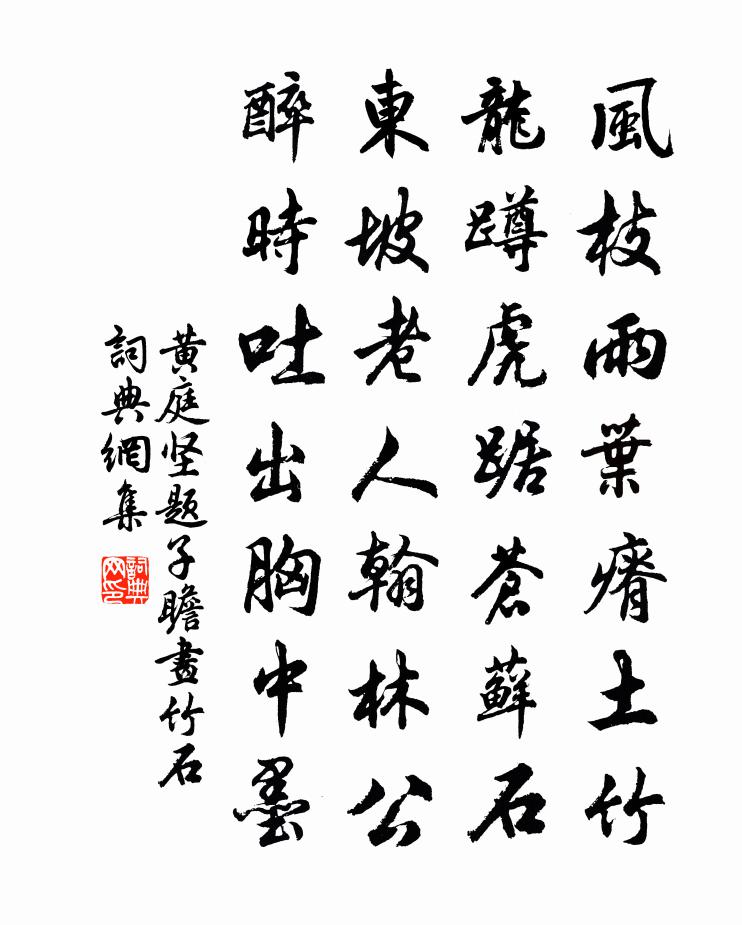 風枝雨葉瘠土竹
龍蹲虎踞蒼蘚石
東坡老人翰林公
醉時吐出胸中墨
黄庭坚题子瞻畫竹石
詞典網集
詞典网印